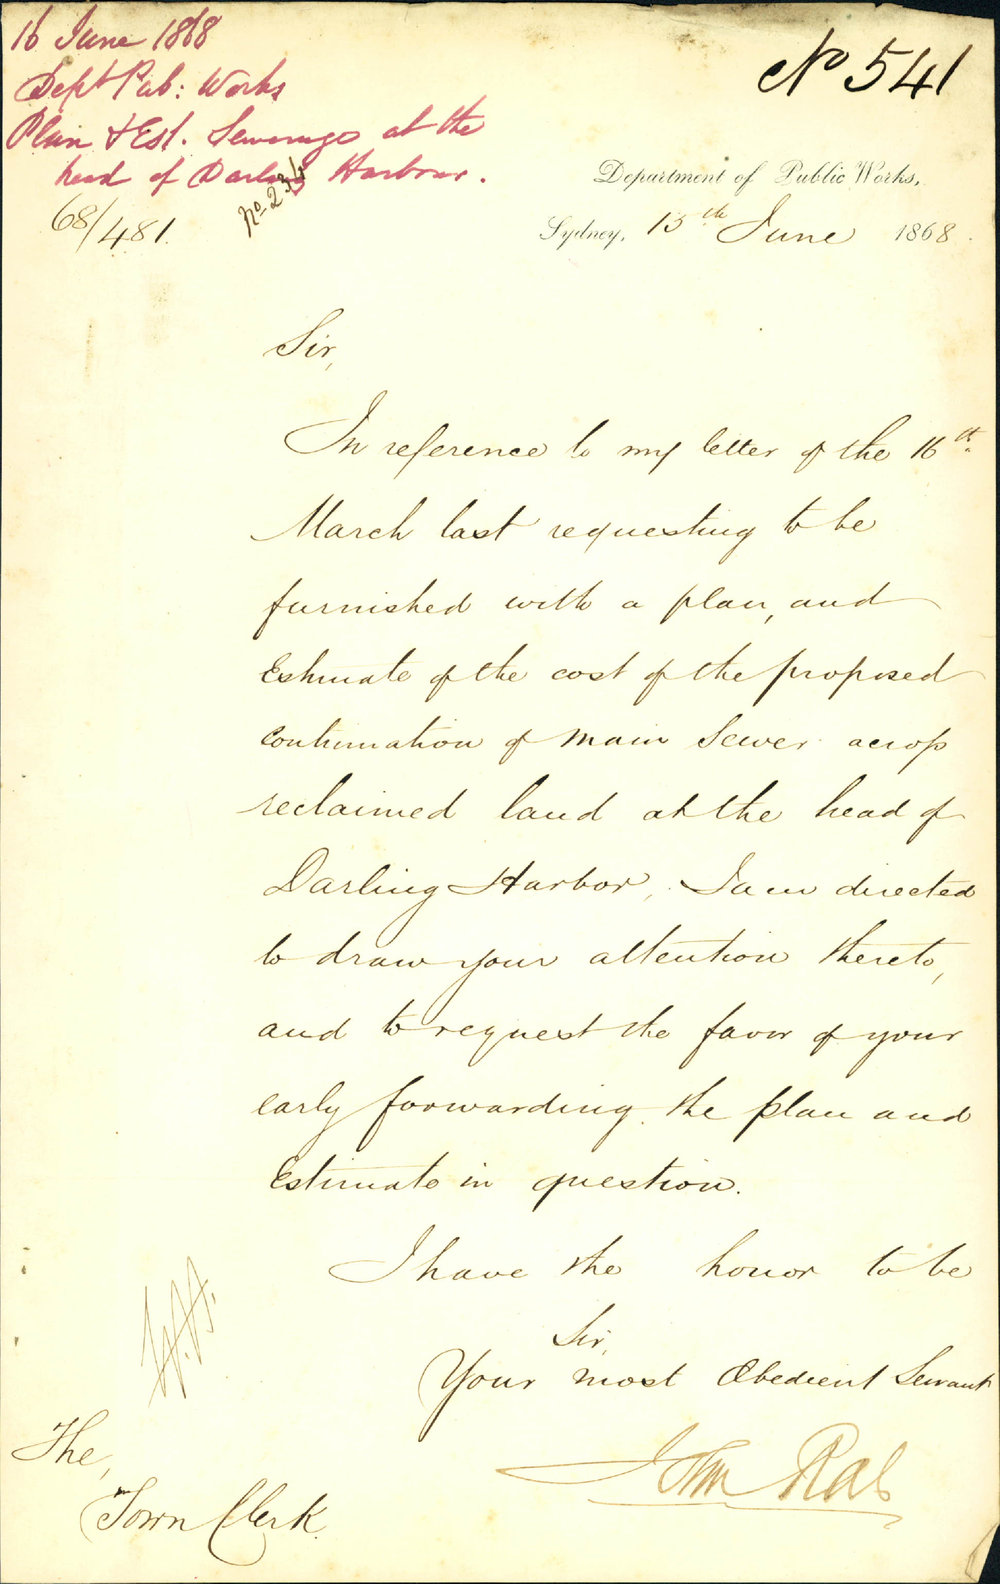 16 June 1868
Dept Pub: Works
Plan & Est. Sewerage at the
head of Darling Harbour.
68/481.
No. 234
No 541
Department of Public Works,
Sydney, 15th June 1868.
Sir,
In reference to my letter of the 16th
March last requesting to be
furnished with a plan, and
Estimate of the cost of the proposed
Continuation of Main Sewer across
reclaimed land at the head of
Darling Harbor, I am directed
to draw your attention thereto,
and to request the favor of your
early forwarding the plan and
Estimate in question.
I have the honor to be
Sir,
Your most Obedient Servant
John Rae
The,
Town Clerk.